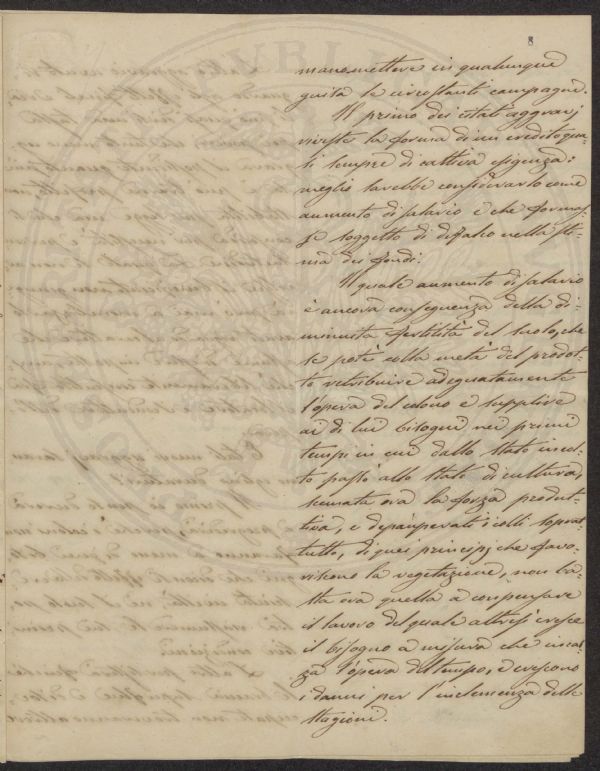 8
manomettere in qualunque
guisa le circostanti campagne.
Il primo dei citati aggravj
riveste la forma di un credito qua-
si sempre di cattiva esigenza:
meglio sarebbe considerarlo come
aumento di salario e che formas-
se soggetto di difalco nella sti-
ma dei fondi.
Il quale aumento di salario
è ancora conseguenza della di-
minuita fertilità del suolo, che
se potè colla metà del prodot-
to retribuire adeguatamente
l'opera del colono e supplire
ai di lui bisogni nei primi
tempi in cui dallo stato incol-
to passò allo stato di cultura,
scemata ora la forza produt-
tiva, e depauperati i colli soprat-
tutto, di quei principj che favo-
riscono la vegetazione, non ba-
sta ora quella a compensare
il lavoro del quale altresì cresce
il bisogno a misura che incal-
za l'opera del tempo, e crescono
i danni per l'inclemenza delle
stagioni.